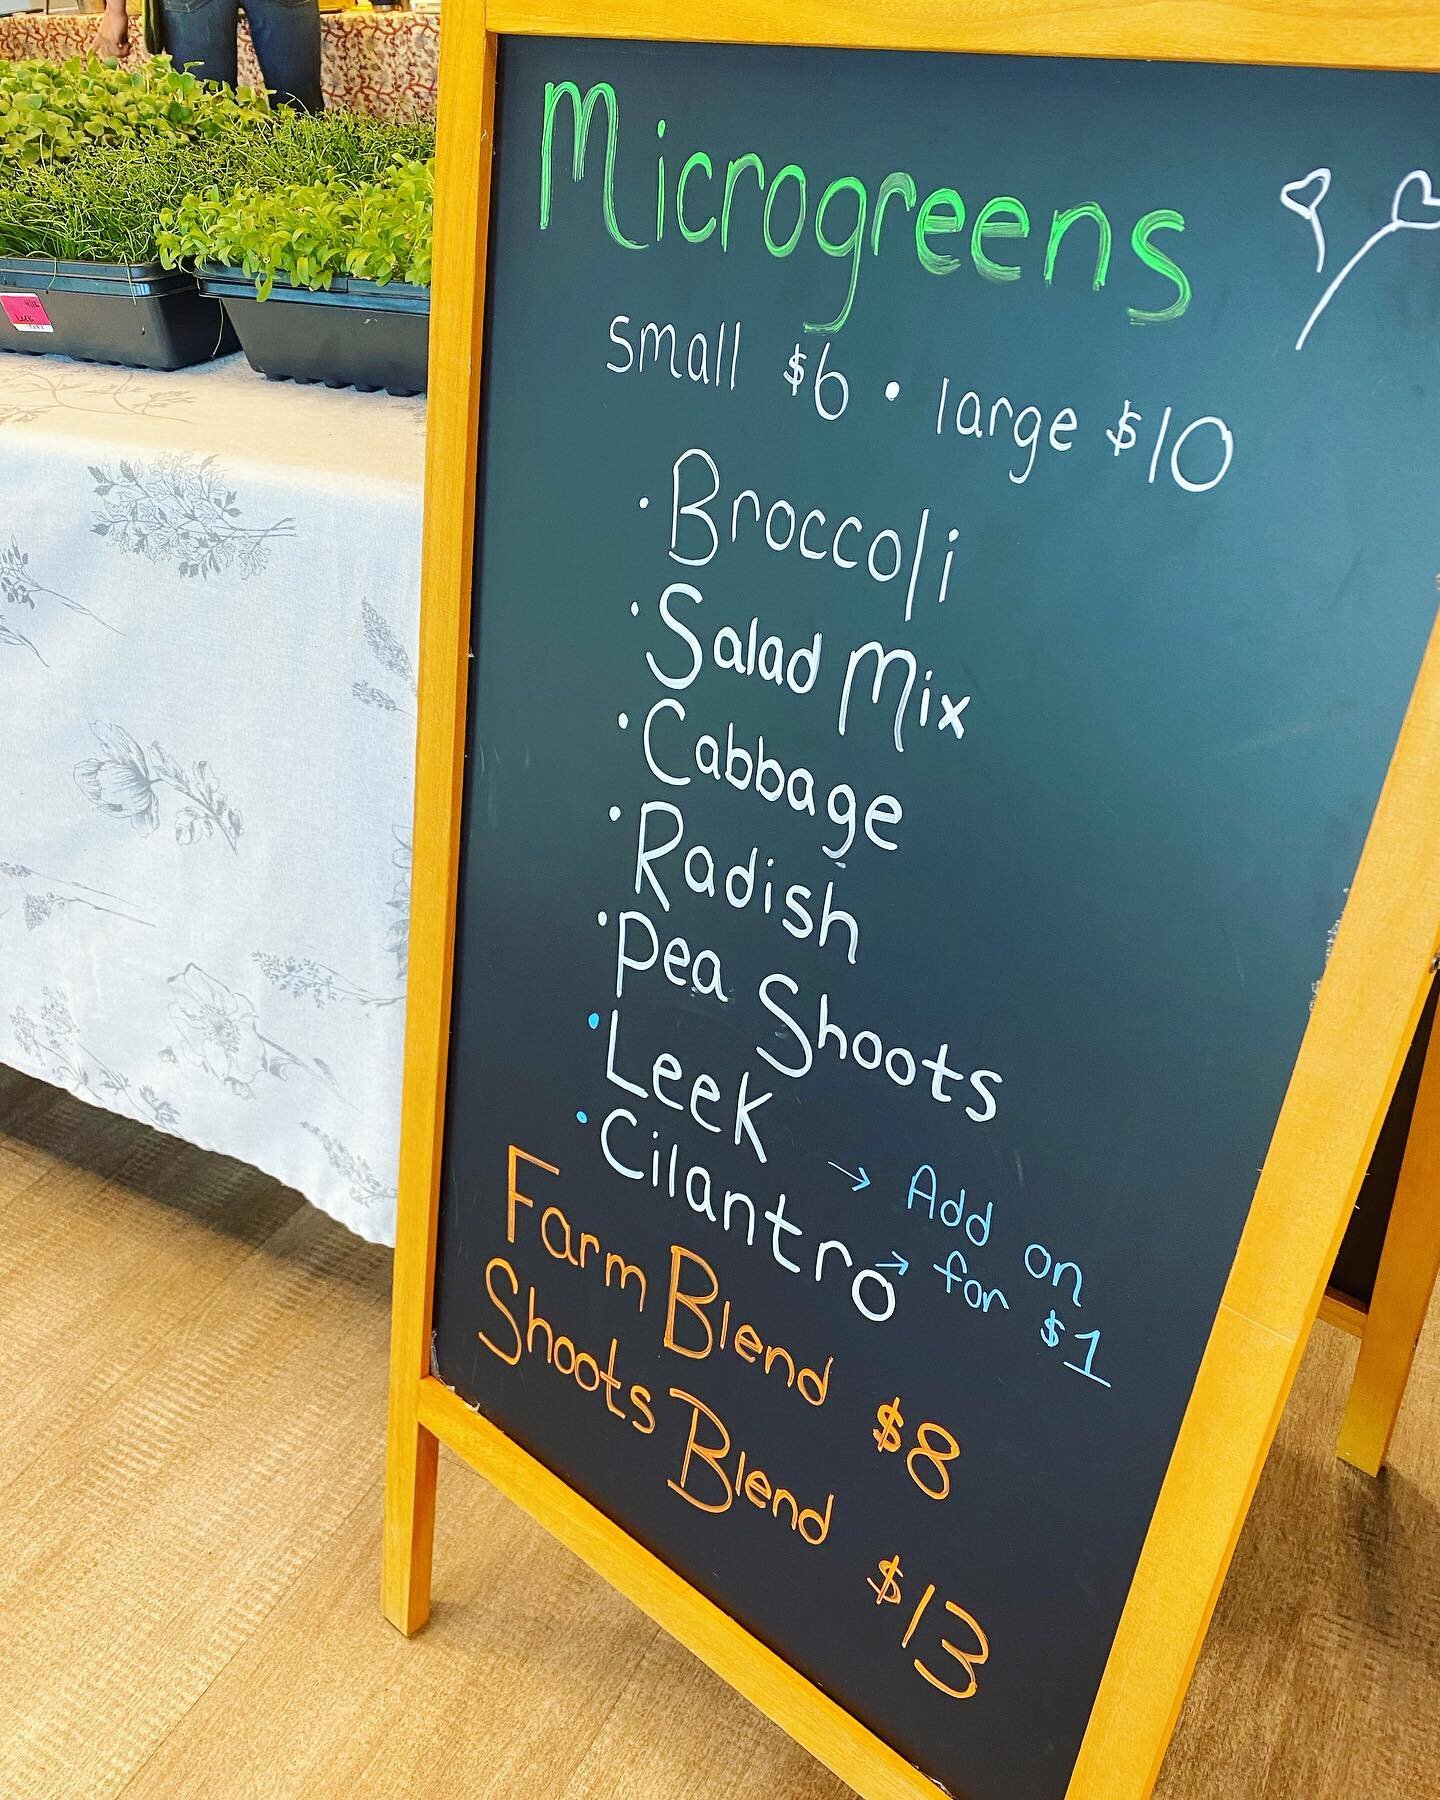 Microgreens
small $6 • large $10
· Broccoli
· Salad Mix
· Cabbage
· Radish
· Pea Shoots
· Leek → Add on
· Cilantro → for $1
Farm Blend $8
Shoots Blend $13
4/12
Leek